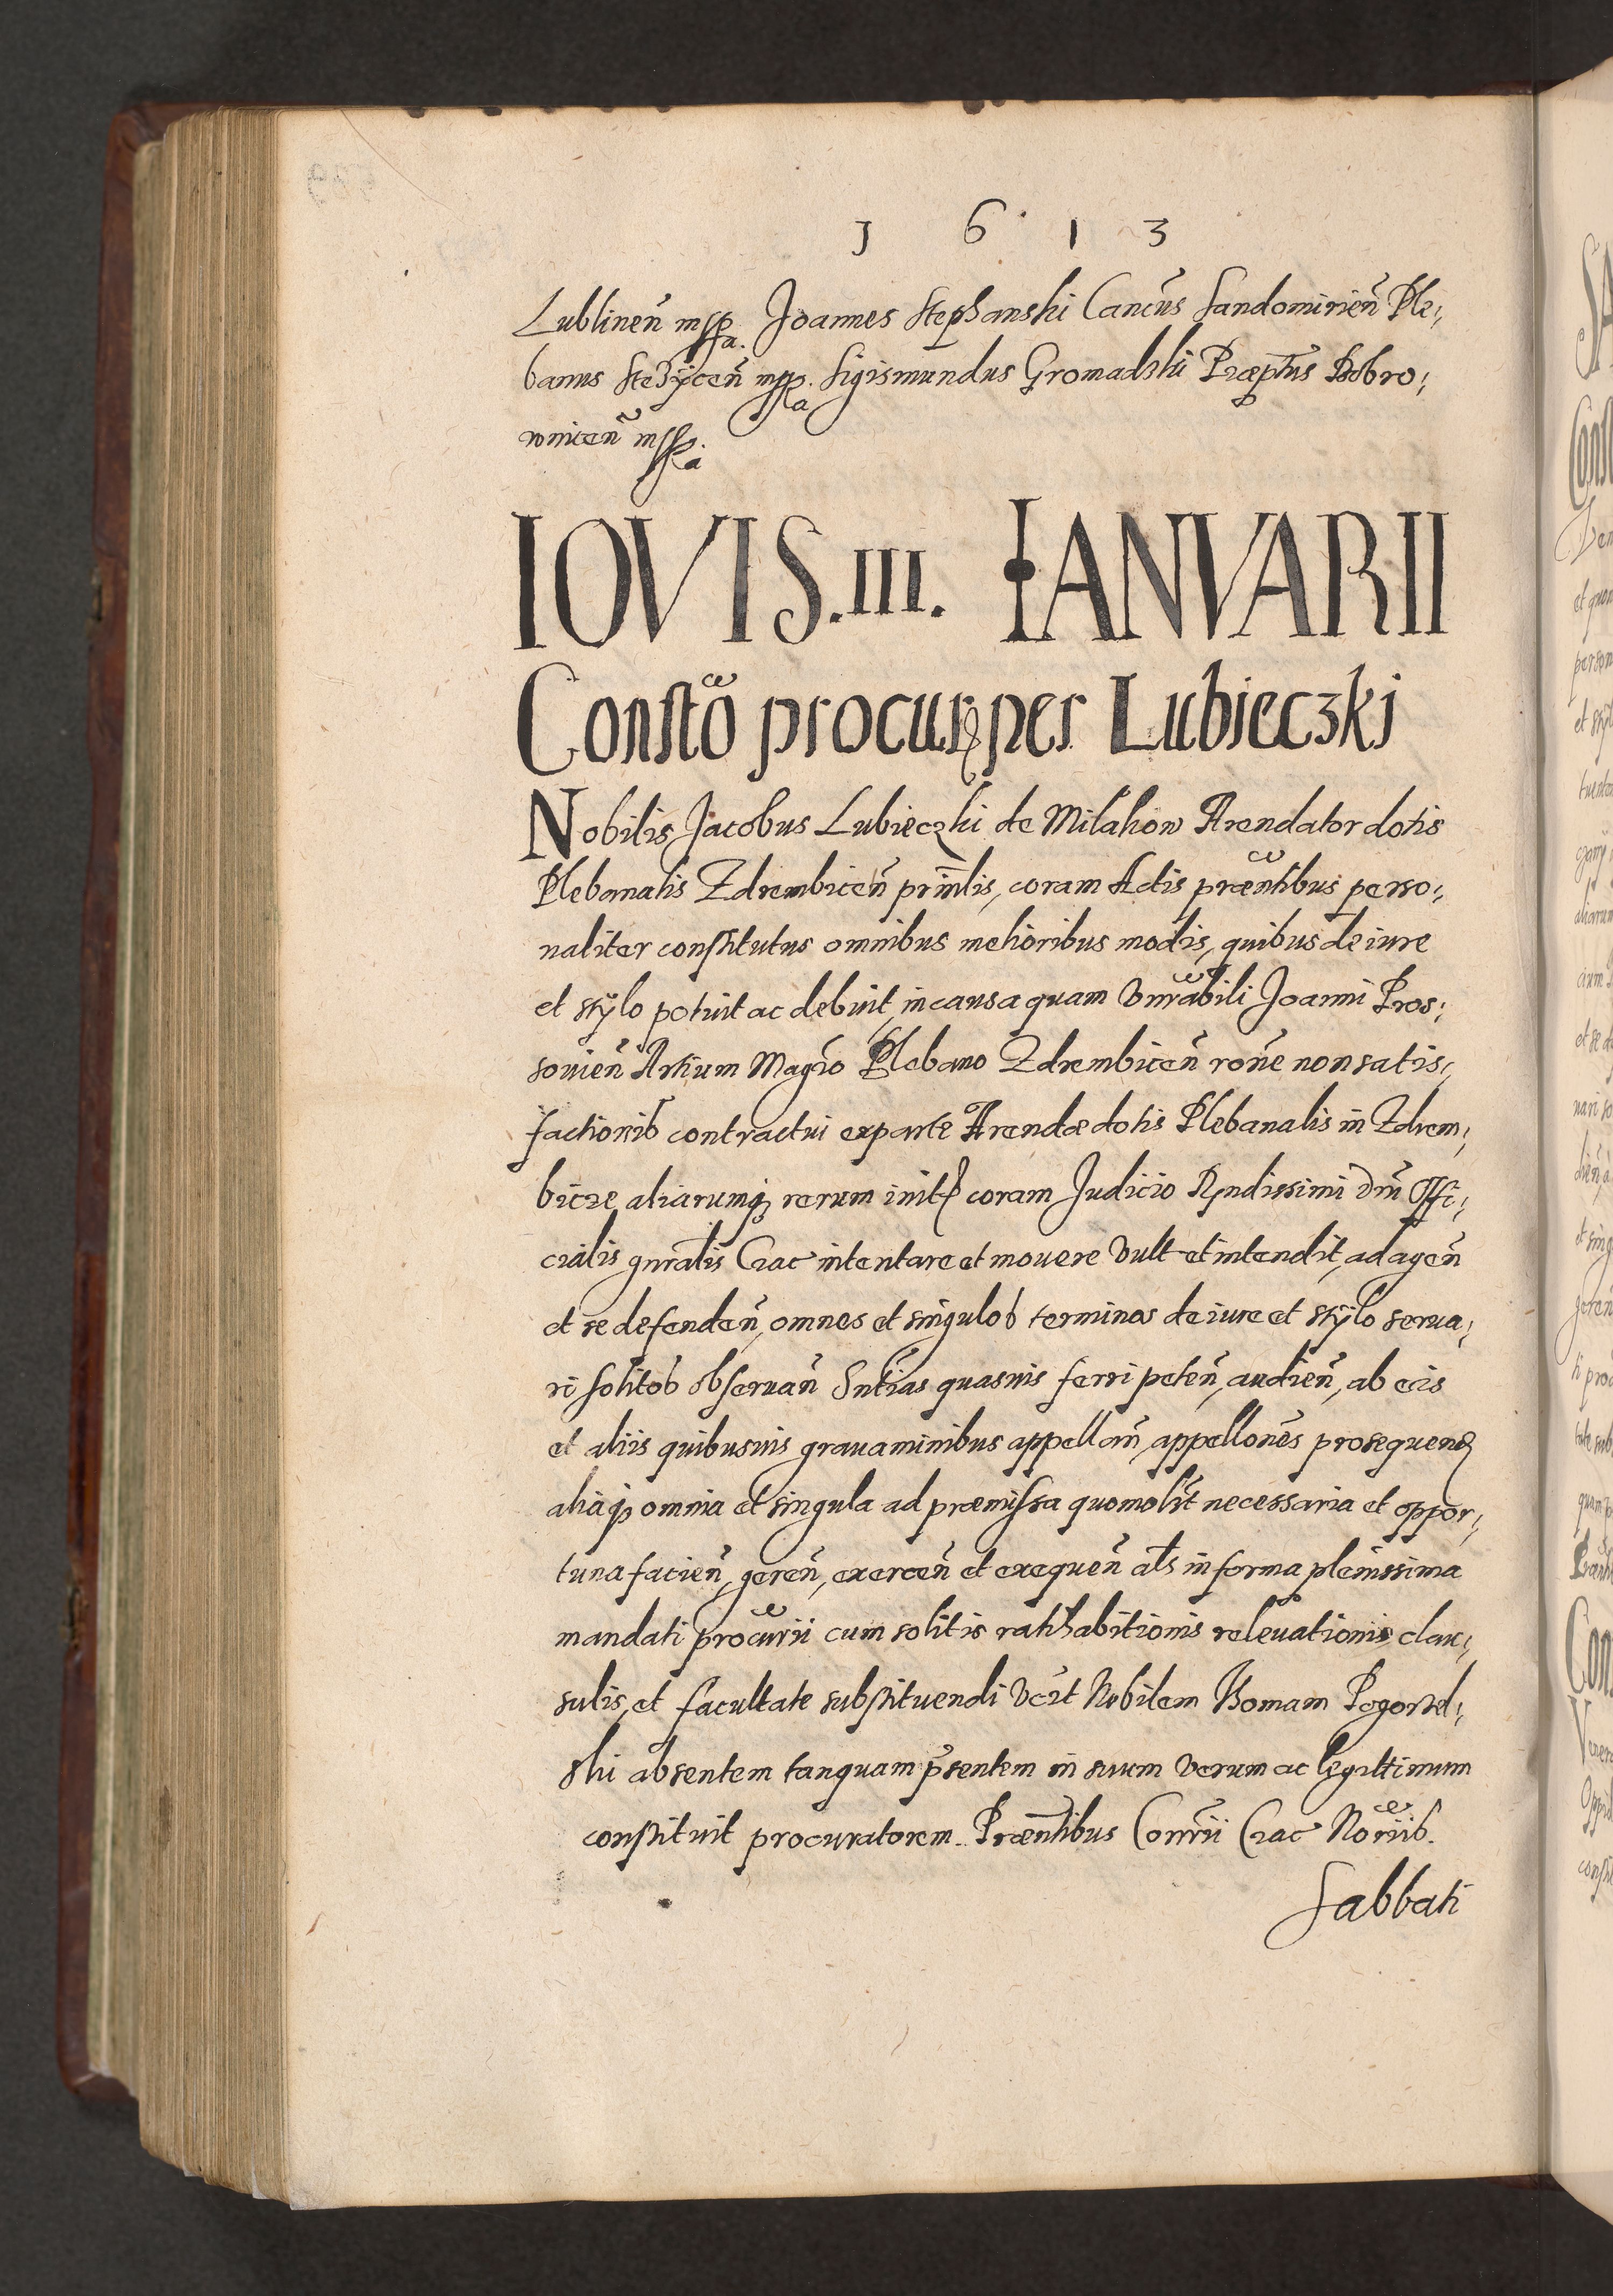 1 6 1 3
Lublineñ mppa. Joannes Stephanski Cancũs Sandomirieñ Ple,
banus Stezÿceñ mppa. Sigismundus Gromadzki Præptus Bobro,
wniceñ mppa
IOVIS .III. IANVARII
Constõ procur per Lubieczki
Nobilis Jacobus Lubieczki de Milakow Arendator dotis
Plebanalis Zdrembiceñ prinlis, coram Actis præntibus perso,
naliter constitutus omnibus melioribus modis, quibus de iure
et stÿlo potuit ac debuit, in causa quam Vnrabili Joanni Pros,
souieñ Artium Magro Plebano Zdrembiceñ rone non satis,
factionis contractui ex parte Arendæ dotis Plebanalis in Zdrem,
bicze aliarumq rerum init coram Judicio Rndissimi Dni Offi,
cialis gnralis Crac intentare et mouere vult et intendit, ad ageñ
et se defendeñ, omnes et singulos terminos de iure et stÿlo serua,
ri solitos obseruañ Sntias quasuis ferri peteñ, audieñ, ab eis
et aliis quibusuis grauaminibus appellañ, appellones prosequend
aliaq omnia et singula ad præmissa quomolt necessaria et oppor,
tuna facieñ, gereñ, exerceñ et exequeñ als in forma plenissima
mandati procurii cum solitis ratihabitionis releuationis clau,
sulis, et facultate substituendi Vczt Nobilem Thomam Pogorzel,
ski absentem tanquam psentem in suum verum ac legittimum
constituit procuratorem. Præntibus Conrii Crac Noriis.
Sabbati